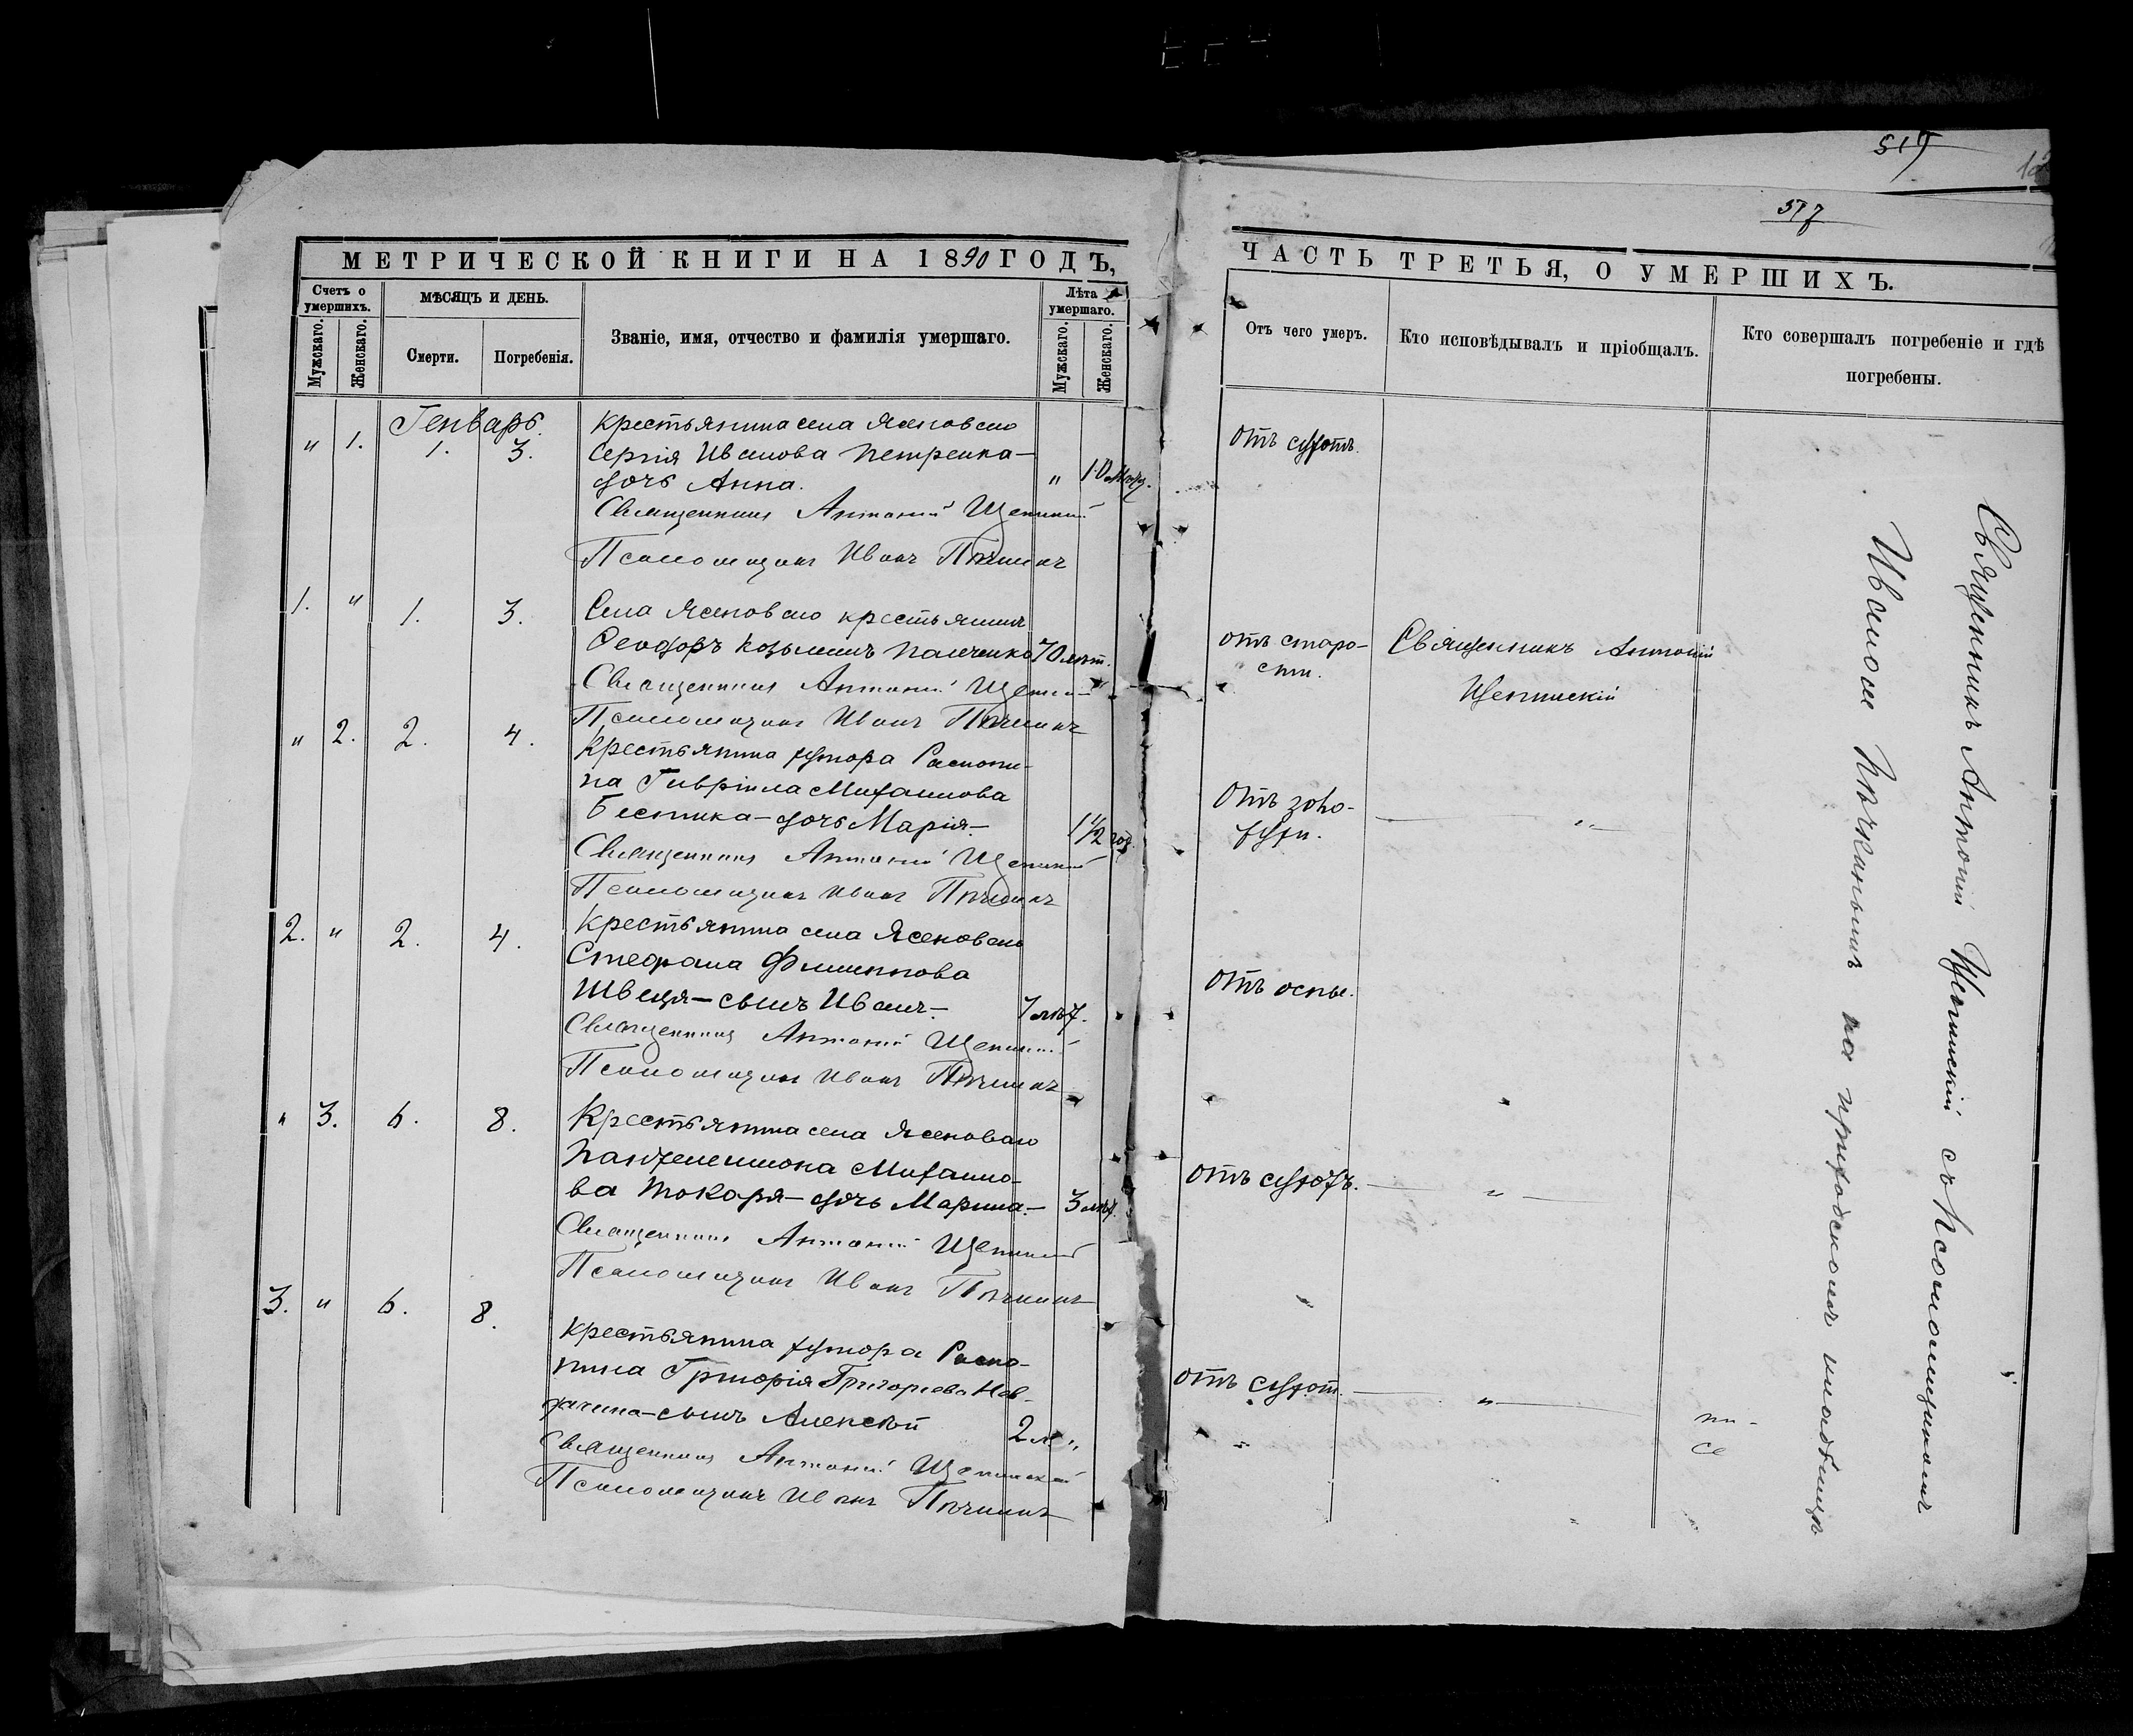 519
577
МЕТРИЧЕСКОЙ КНИГИ НА 1890 ГОДЪ,
Счетъ о умершихъ.
Мужскаго.
Женскаго.
МѢСЯЦЪ И ДЕНЬ.
Смерти.
Погребенія.
Званіе, имя, отчество и фамилія умершаго.
Лѣта умершаго.
Мужскаго.
Женскаго.
Генварь.
" 1. 1. 3.
Крестьянина села Ясеноваго
Сергія Иванова Петренка—
дочь Анна. " 10 мѣс.
Священникъ Антоній
Псаломщикъ Иванъ
1. " 1. 3.
Села Ясеноваго крестьянинъ
Ѳеодоръ Козьминъ Панченко 70 лѣт.
Священникъ Антоній
Псаломщикъ Иванъ
" 2. 2. 4.
Крестьянина хутора Распопи-
на Гавріила Михайлова
дочь Марія.— 1 1/2 год.
Священникъ Антоній
Псаломщикъ Иванъ
2. " 2. 4.
Крестьянина села Ясеноваго
Стефана Филиппова
Швеця—сынъ Иванъ.— 7 лѣт.
Священникъ Антоній
Псаломщикъ Иванъ
" 3. 6. 8.
Крестьянина села Ясеноваго
Пантелеимона Михайло-
ва Токаря—дочь Марина.— 3 лѣт.
Священникъ Антоній
Псаломщикъ Иванъ
3. " 6. 8.
Крестьянина хутора Распо-
пина Григорія Григорьева
сынъ Алексѣй 2 л. "
Священникъ Антоній
Псаломщикъ Иванъ
ЧАСТЬ ТРЕТЬЯ, О УМЕРШИХЪ.
Отъ чего умеръ.
Кто исповѣдывалъ и пріобщалъ.
Кто совершалъ погребеніе и гдѣ
погребены.
отъ сухотъ.
отъ старо-
сти.
Священникъ Антоній
отъ
"
отъ оспы.
"
отъ сухотъ. "
отъ сухот. "
Священникъ Антоній съ Псаломщикомъ
Иваномъ на приходскомъ кладбищѣ